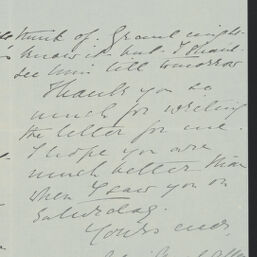 think of. Grant might
know it but I shan't
see him till tomorrow
Thank you so
much for writing
the letter for me.
I hope you are
much better than
when I saw you on
Saturday.
Yours ever,